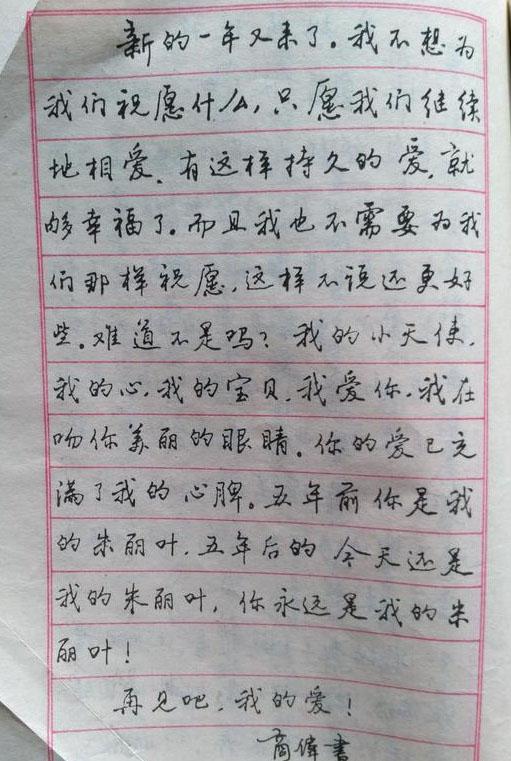 新的一年又来了。我不想为
我们祝愿什么,只愿我们继续
地相爱、有这样持久的爱,就
够幸福了。而且我也不需要为我
们那样祝愿,这样不说还更好
些。难道不是吗?我的小天使,
我的心,我的宝贝,我爱你,我在
吻你美丽的眼睛。你的爱已充
满了我的心脾。五年前你是我
的朱丽叶,五年后的今天还是
我的朱丽叶,你永远是我的朱
丽叶!
再见吧,我的爱!
商伟书